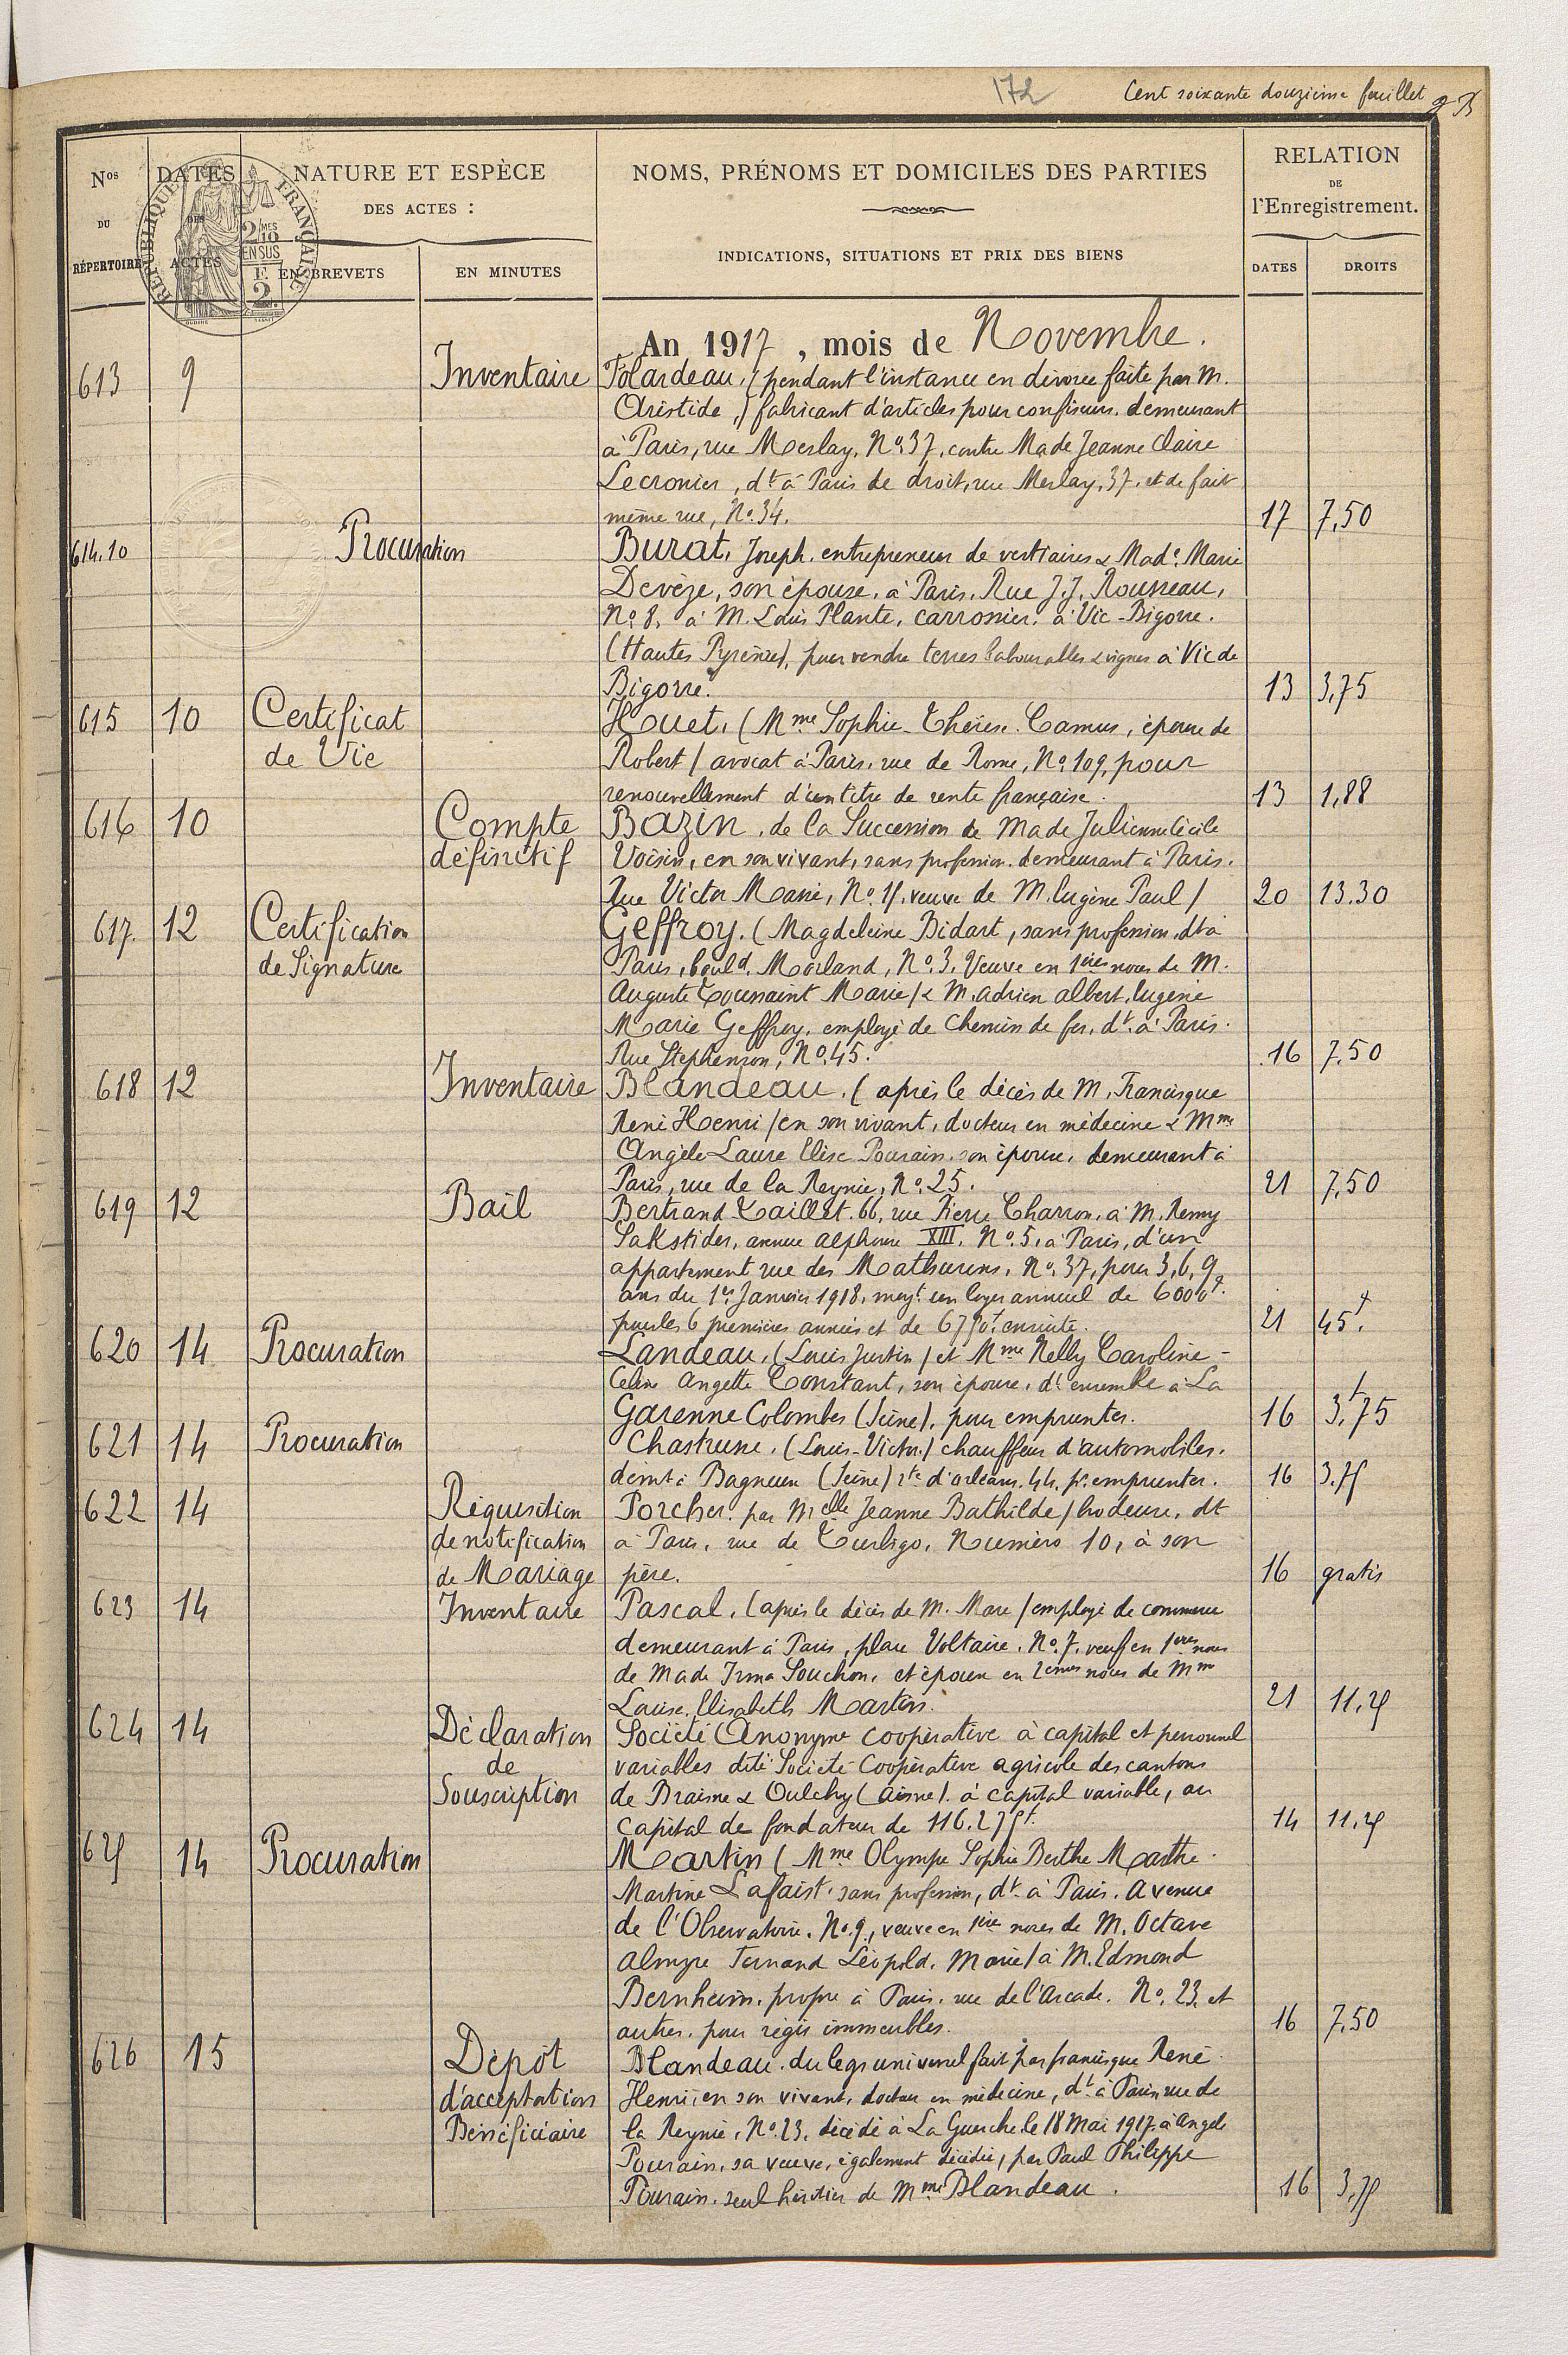 172
Cent soixante douzième feuillet
Nos DU RÉPERTOIRE
DATES DES ACTES
NATURE ET ESPÈCE
DES ACTES :
EN BREVETS
EN MINUTES
NOMS, PRÉNOMS ET DOMICILES DES PARTIES
INDICATIONS, SITUATIONS ET PRIX DES BIENS
RELATION
DE
l'Enregistrement.
DATES
DROITS
RÉPUBLIQUE FRANÇAISE
2/10 MES
EN SUS
F. 2
An 1917, mois de Novembre.
613 9 Inventaire Folardeau, (pendant l'instance en divorce faite par M.
Aristide,) fabricant d'articles pour confiseurs, demeurant
à Paris, rue Meslay, No. 37, contre Made Jeanne Claire
Lecronier, dt à Paris de droit, rue Meslay, 37, et de fait
même rue, No. 34. 17 7,50
614. 10 Procuration Burat, Joseph, entrepreneur de vestiaires & Made. Marie
Devèze, son épouse, à Paris, Rue J.J. Rousseau,
No. 8, à M. Louis Plante, carrossier, à Vic-Bigorre.
(Hautes Pyrénées), pour vendre terres labourables & vignes à Vic de
Bigorre. 13 3,75
615 10 Certificat Houet, (Mme Sophie-Thérèse Camus, épouse de
de Vie Robert / avocat à Paris, rue de Rome, No. 109, pour
renouvellement d'un titre de rente française. 13 1,88
616 10 Compte Bazin, de la Succession de Made Julienne Cécile
définitif Voisin, en son vivant, sans profession, demeurant à Paris,
Rue Victor Massé, No. 15, veuve de M. Eugène Paul / 20 13.30
617. 12 Certification Geffroy. (Magdeleine Bidart, sans profession, dt à
de Signature Paris, bould. Morland, No. 3, Veuve en 1ères noces de M.
Auguste Toussaint Marie / & M. Adrien Albert, Eugène
Marie Geffroy, employé de Chemin de fer, dt à Paris.
Rue Stephenson, No. 45. 16 7.50
618 12 Inventaire Blandeau, (après le décès de M. Francisque
René Henri / en son vivant, docteur en médecine & Mme
Angèle Laure Elise Pourain, son épouse, demeurant à
Paris, rue de la Reynie, No. 25. 21 7,50
619 12 Bail Bertrand Taillet, 66, rue Pierre Charron, à M. Remy
Sakstider, avenue Alphonse XIII, No. 5, à Paris, d'un
appartement rue des Mathurins, No. 37, pour 3, 6, 9
ans du 1er Janvier 1918, moyt un loyer annuel de 6000f.
pour les 6 premières années et de 6750f. ensuite. 21 45f.
620 14 Procuration Landeau, (Louis Justin / et Mme Nelly Caroline-
Celine Angette Constant, son épouse, dt ensemble à La
Garenne Colombes (Seine), pour emprunter. 16 3,75
621 14 Procuration Chastrusse, (Louis-Victor) chauffeur d'automobiles,
demt à Bagneux (Seine) rte d'Orléans, 44, pr. emprunter. 16 3.75
622 14 Réquisition Porcher, par Melle Jeanne Bathilde / brodeuse, dt
de notification à Paris, rue de Turbigo, Numéro 10, à son
de Mariage père. 16 gratis
623 14 Inventaire Pascal, (après le décès de M. Marc / employé de commerce
demeurant à Paris, place Voltaire, No. 7, veuf en 1ères noces
de Made Irma Souchon, et époux en 2èmes noces de Mme
Louise Elisabeth Martin. 21 11,25
624 14 Déclaration Société Anonyme coopérative à capital et personnel
de variables dite Société Coopérative agricole des cantons
Souscription de Braisne & Oulchy (Aisne). à capital variable, au
capital de fondateur de 116.275f. 14 11,25
625 14 Procuration Martin (Mme Olympe Sophie Berthe Marthe
Martine Lafaist, sans profession, dt à Paris. Avenue
de l'Observatoire, No. 9, veuve en 1ère noces de M. Octave
Almyre Fernand Léopold, Marie / à M. Edmond
Bernheim, propre à Paris, rue de l'Arcade, No. 23, et
autres, pour régir immeubles. 16 7.50
626 15 Dépôt Blandeau, du legs universel fait par francisque René
d'acceptation Henri, en son vivant, docteur en médecine, dt à Paris, rue de
Bénéficiaire la Reynie, No. 23, décédé à La Guerche le 18 Mai 1917, à Angèle
Pourain, sa veuve, également décédée, par Paul Philippe
Pourain, seul héritier de Mme Blandeau. 16 3,75